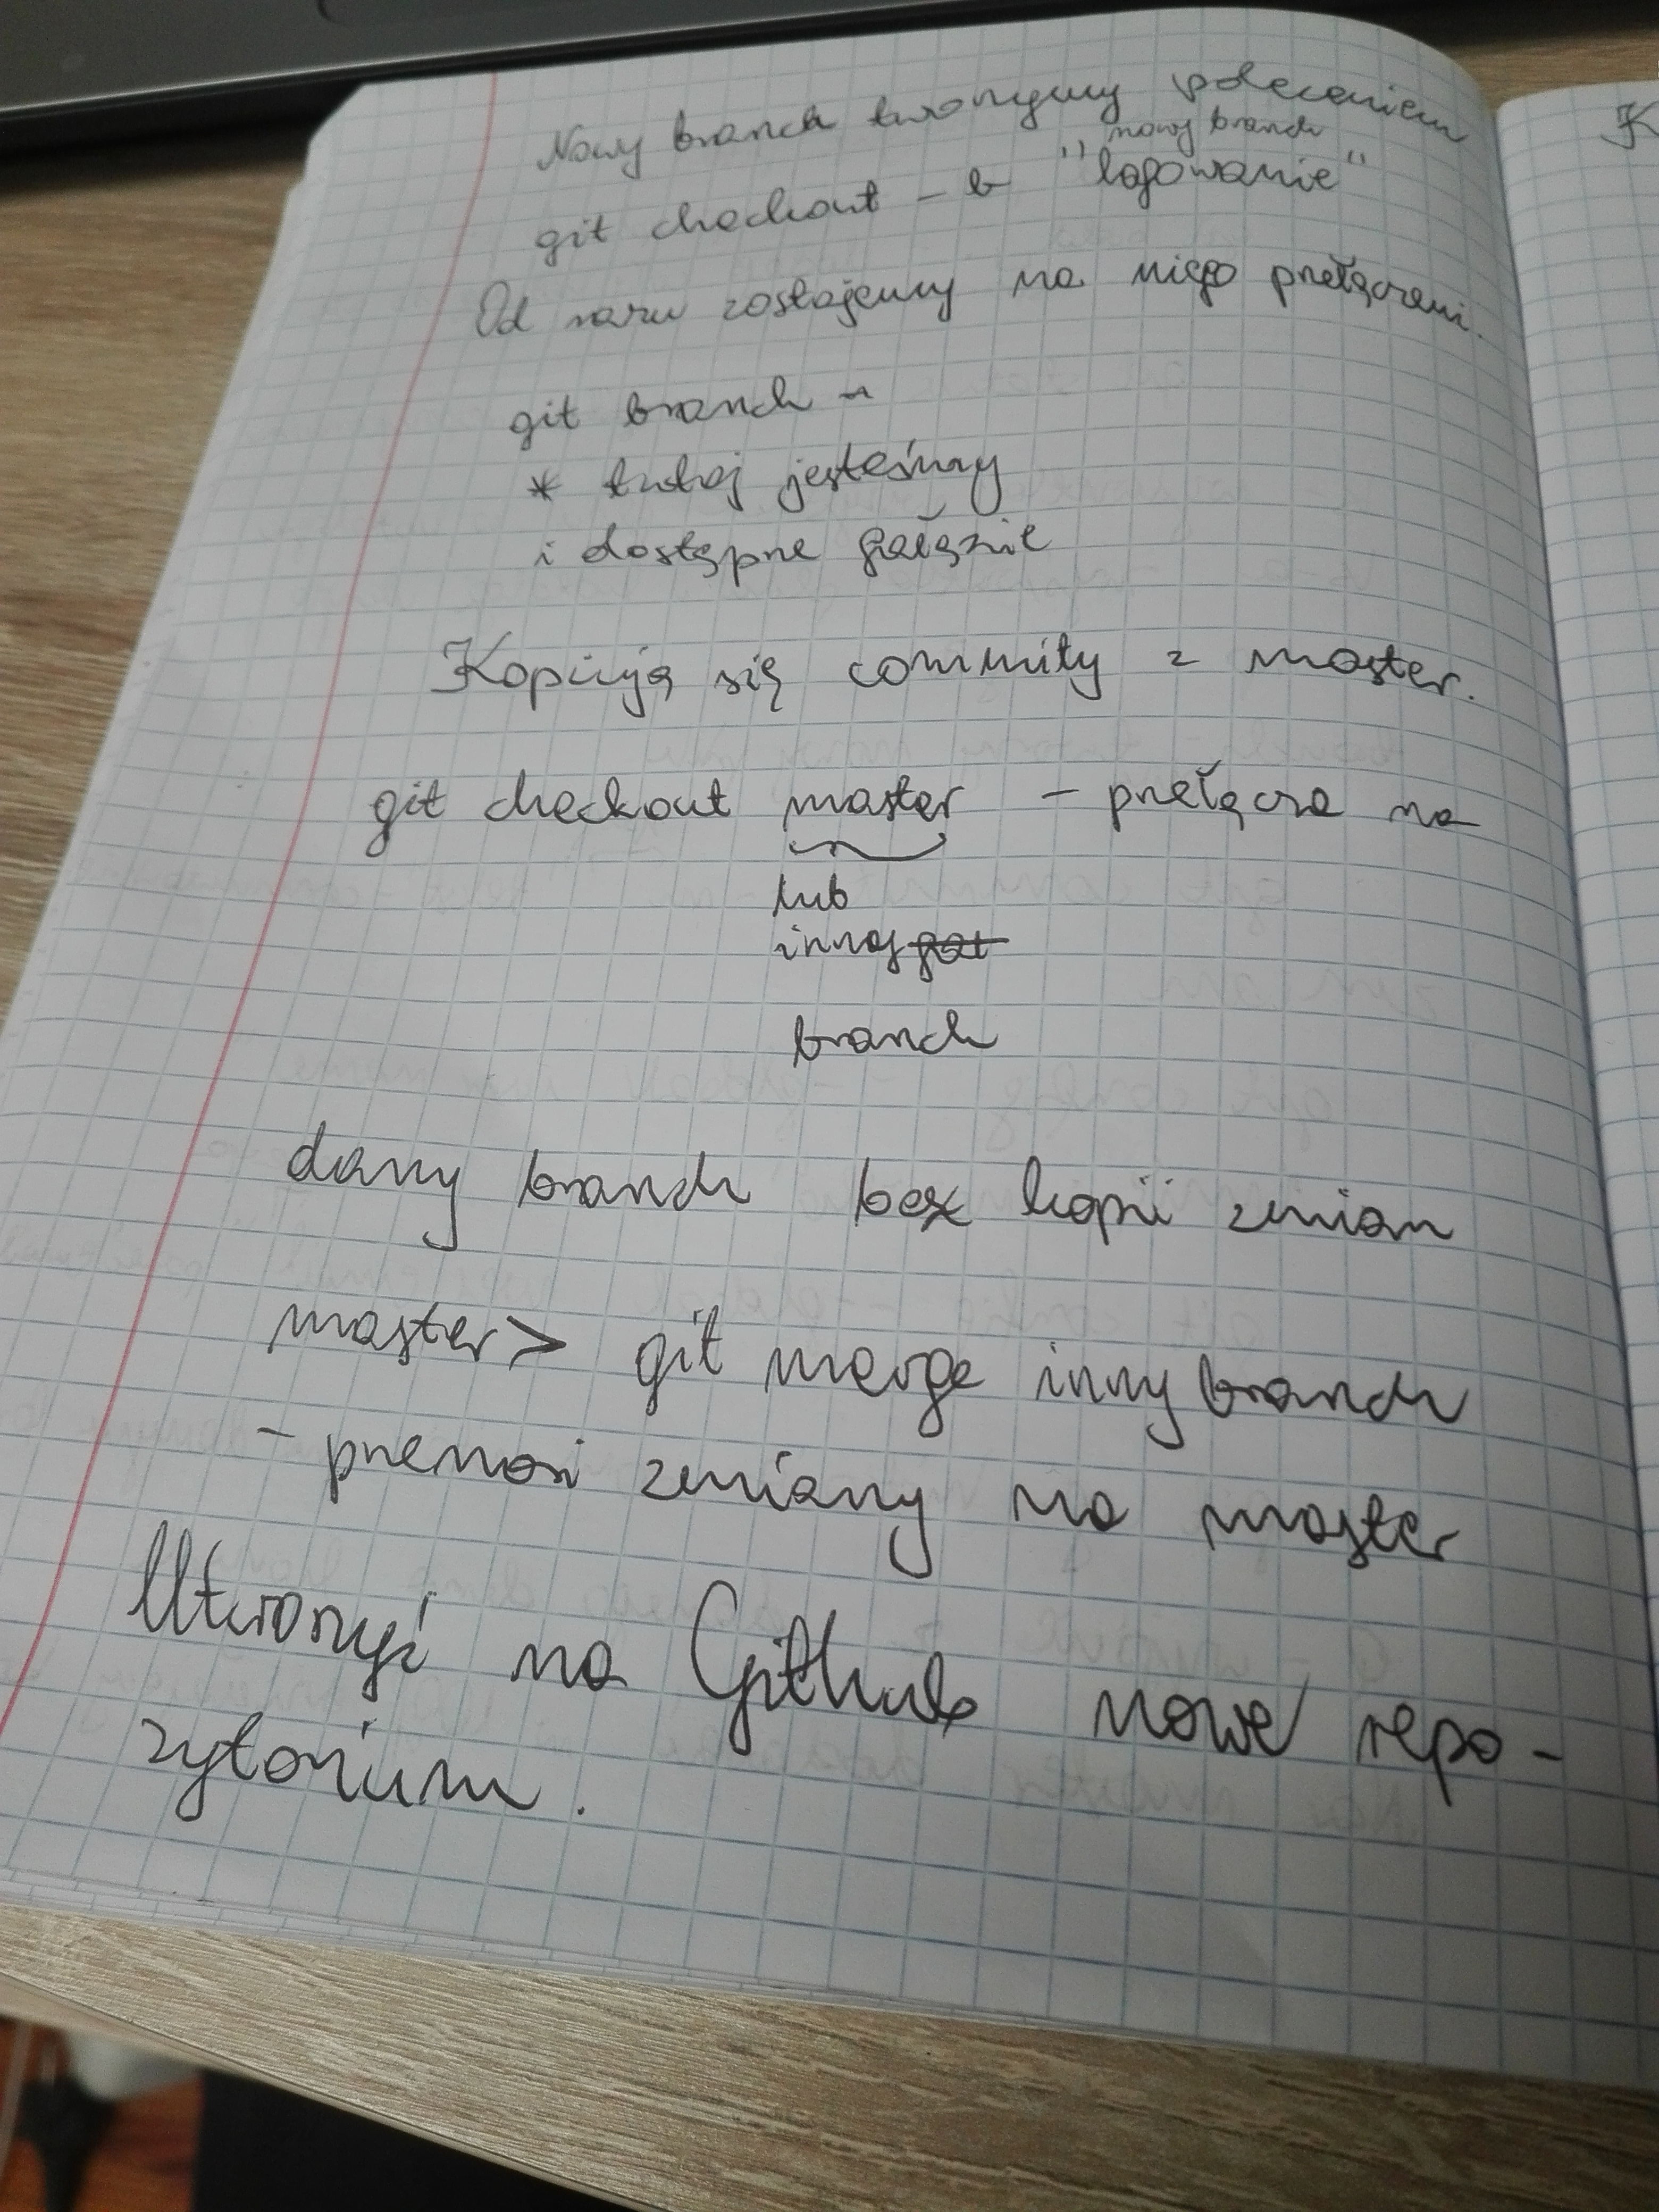 Nowy branch tworzymy poleceniem
nowy branch
git checkout -b "logowanie"
Od razu zostajemy na niego przełączeni.
git branch -
* tutaj jesteśmy
i dostępne gałęzie
Kopiują się commity z master.
git checkout master - przełącza na
lub
inny
branch
dany branch bez kopii zmian
master> git merge inny branch
- przenosi zmiany na master
Utworzyć na Github nowe repo-
zytorium.
K